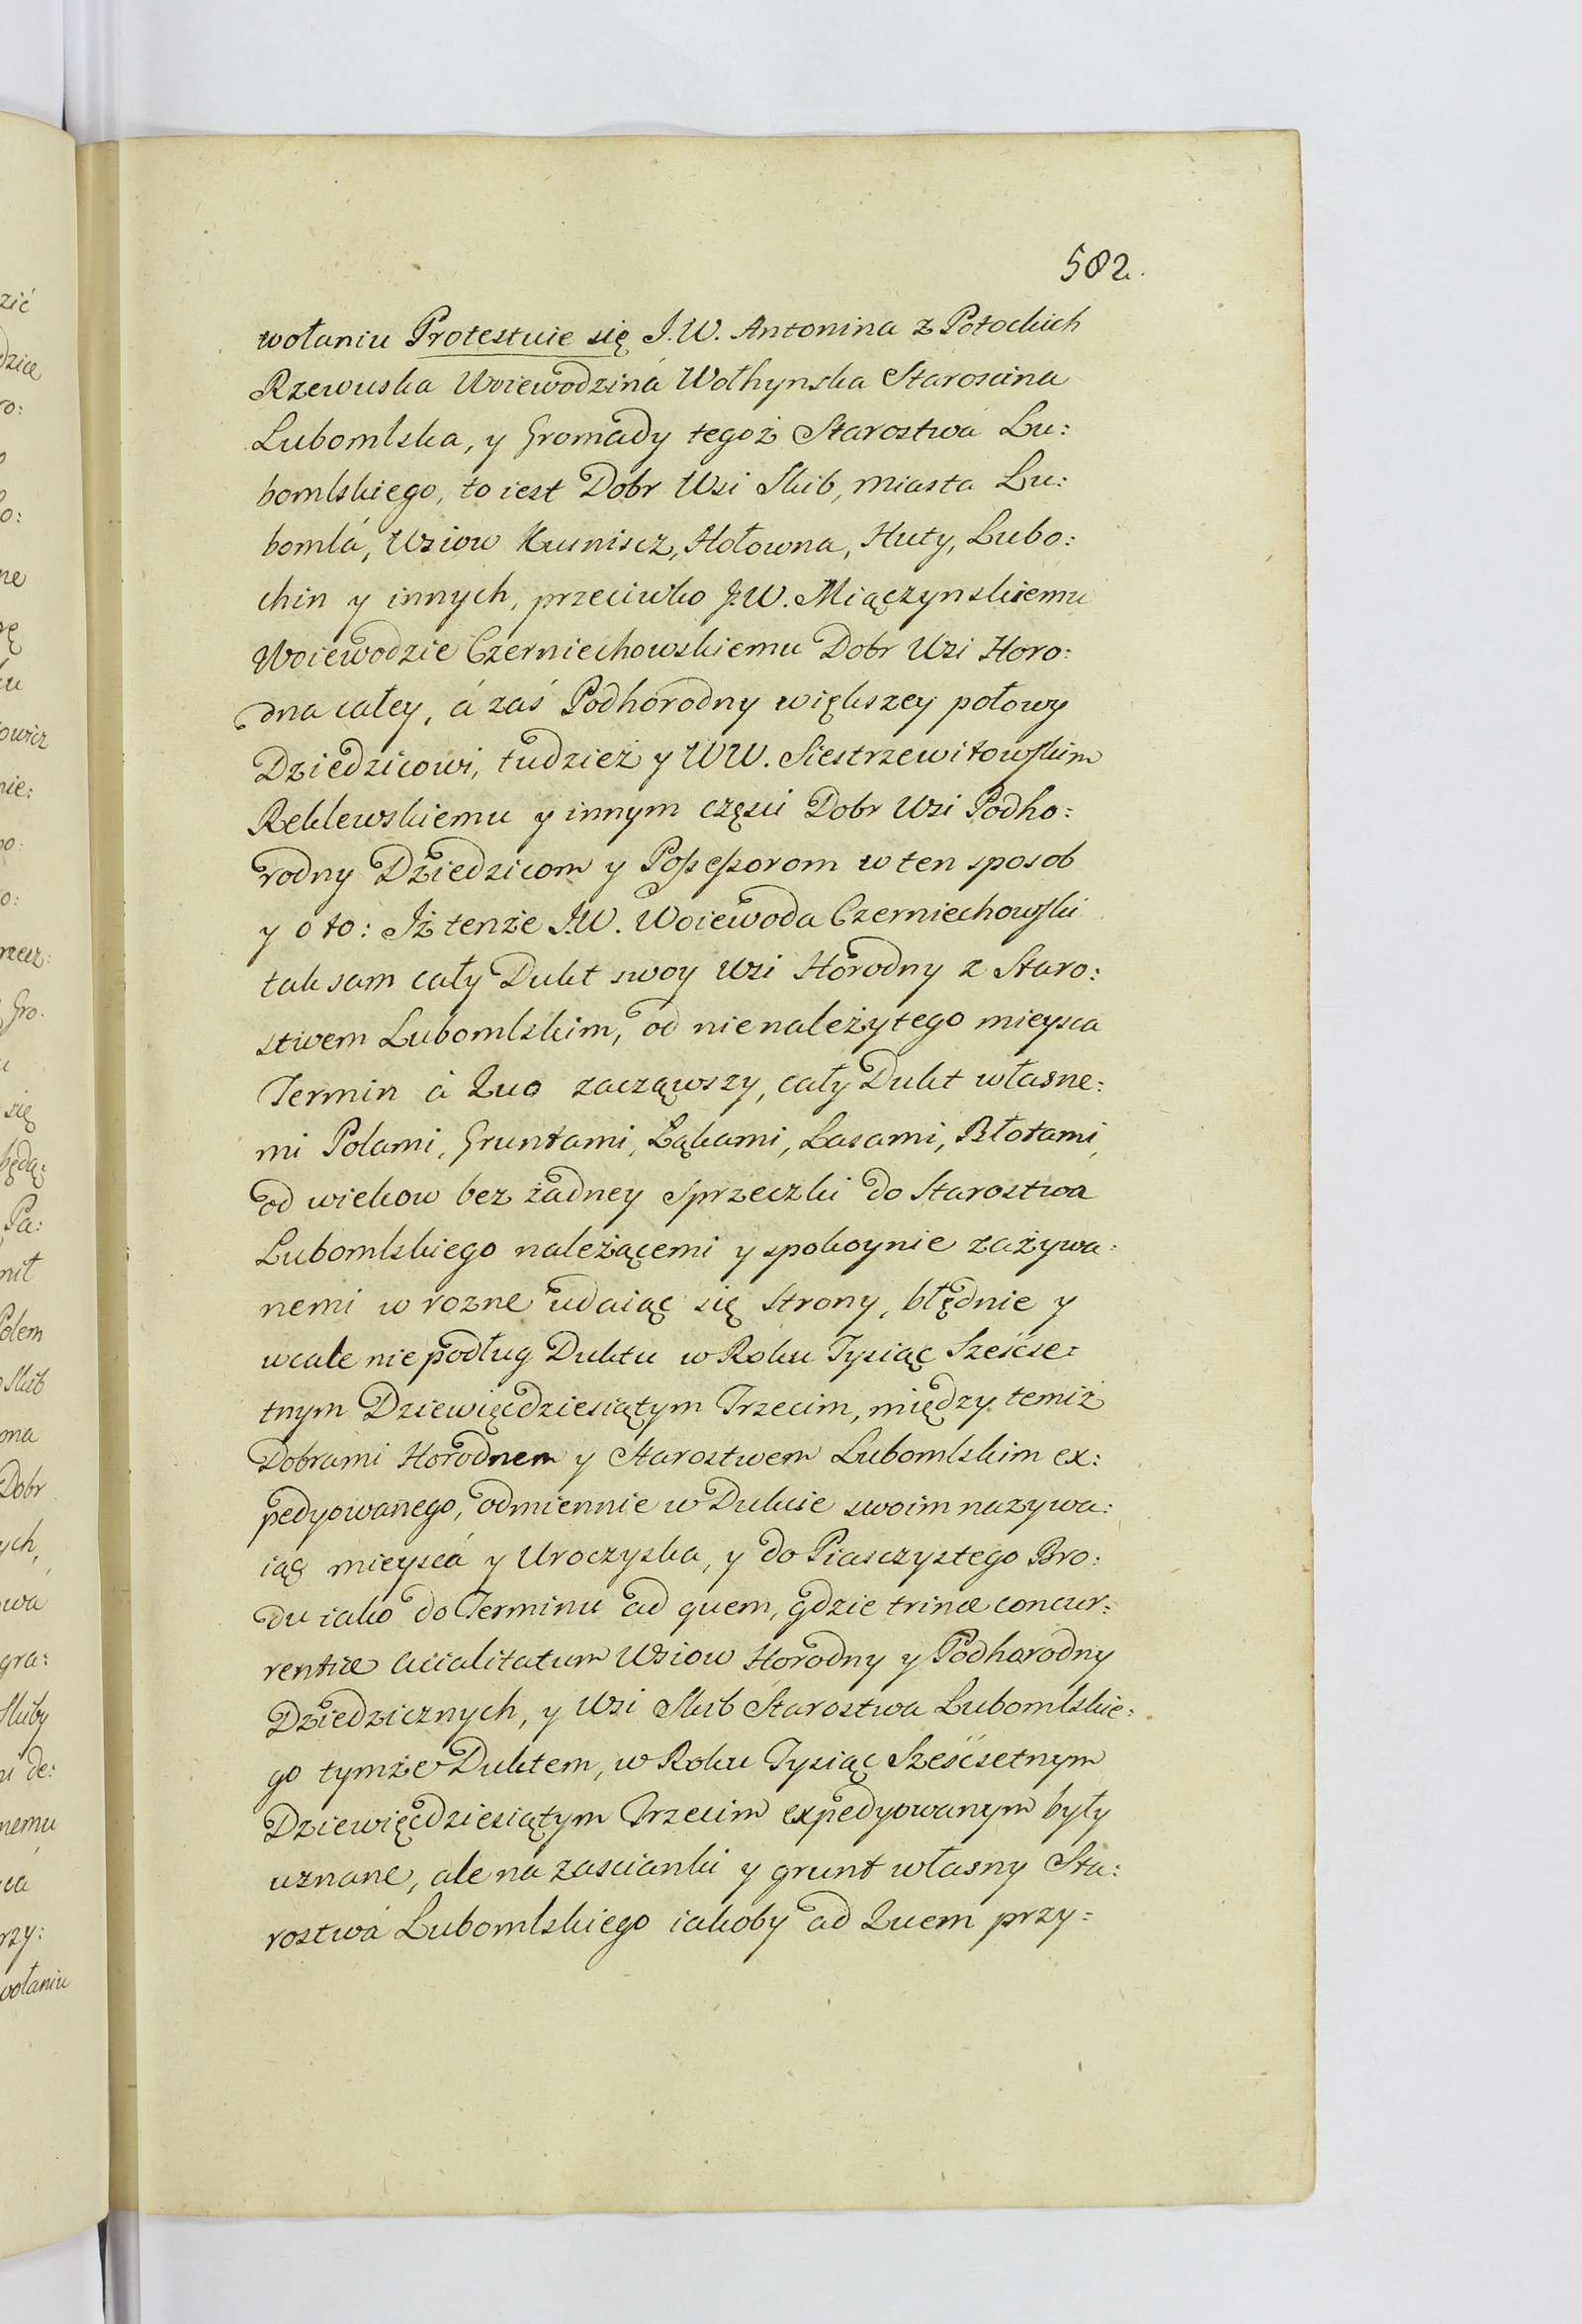 582.
wołaniu Protestuie się J.W. Antonina z Potockich
Rzewuska Woiewodziná Wołhynska Staroscina
Lubomlska, y Gromady tegoż Starostwá Lu:
bomlskiego, to iest Dobr Wsi Skib, miasta Lu:
bomlá, Wsiow Kusniscz, Hołowna, Huty, Lubo:
chin y innych, przeciwko J.W. Miączynskiemu
Woiewodzie Czerniechowskiemu Dobr Wsi Horo:
dna całey, á zaś Podhorodny większey połowy
Dziedzicowi, tudzież y WW. Siestrzewitowskim
Reklewskiemu y innym częsci Dobr Wsi Podho:
rodny Dziedzicom y Possessorom w ten sposob
y o to: Iż tenże J.W. Woiewoda Czerniechowski
tak sam cały Dukt swoy Wsi Horodny z Staro:
stwem Lubomlskim, od nienależytego mieysca
Termin á Quo zacząwszy, cały Dukt własne:
mi Polami, Gruntami, Łąkami, Lasami, Błotami,
od wiekow bez żadney sprzeczki do Starostwa
Lubomlskiego należącemi y spokoynie zażywa:
nemi w rozne udaiąc się strony, błędnie y
wcale nie podług Duktu w Roku Tysiąc Sześćse:
tnym Dziewięćdziesiątym Trzecim, między temiż
Dobrami Horodnem y Starostwem Lubomlskim ex:
pedyowanego, odmiennie w Dukcie swoim nazywa:
iąc mieyscá y Uroczyska, y do Piasczystego Bro:
du iako do Terminu ad quem, gdzie trinæ concur:
rentiæ Acialitatum Wsiow Horodny y Podhorodny
Dziedzicznych, y Wsi Skib Starostwa Lubomlskie:
go tymże Duktem, w Roku Tysiąc Sześćsetnym
Dziewięćdziesiątym Trzecim expedyowanym były
uznane, ale na zascianki y grunt własny Sta:
rostwá Lubomlskiego iakoby ad Quem przy: